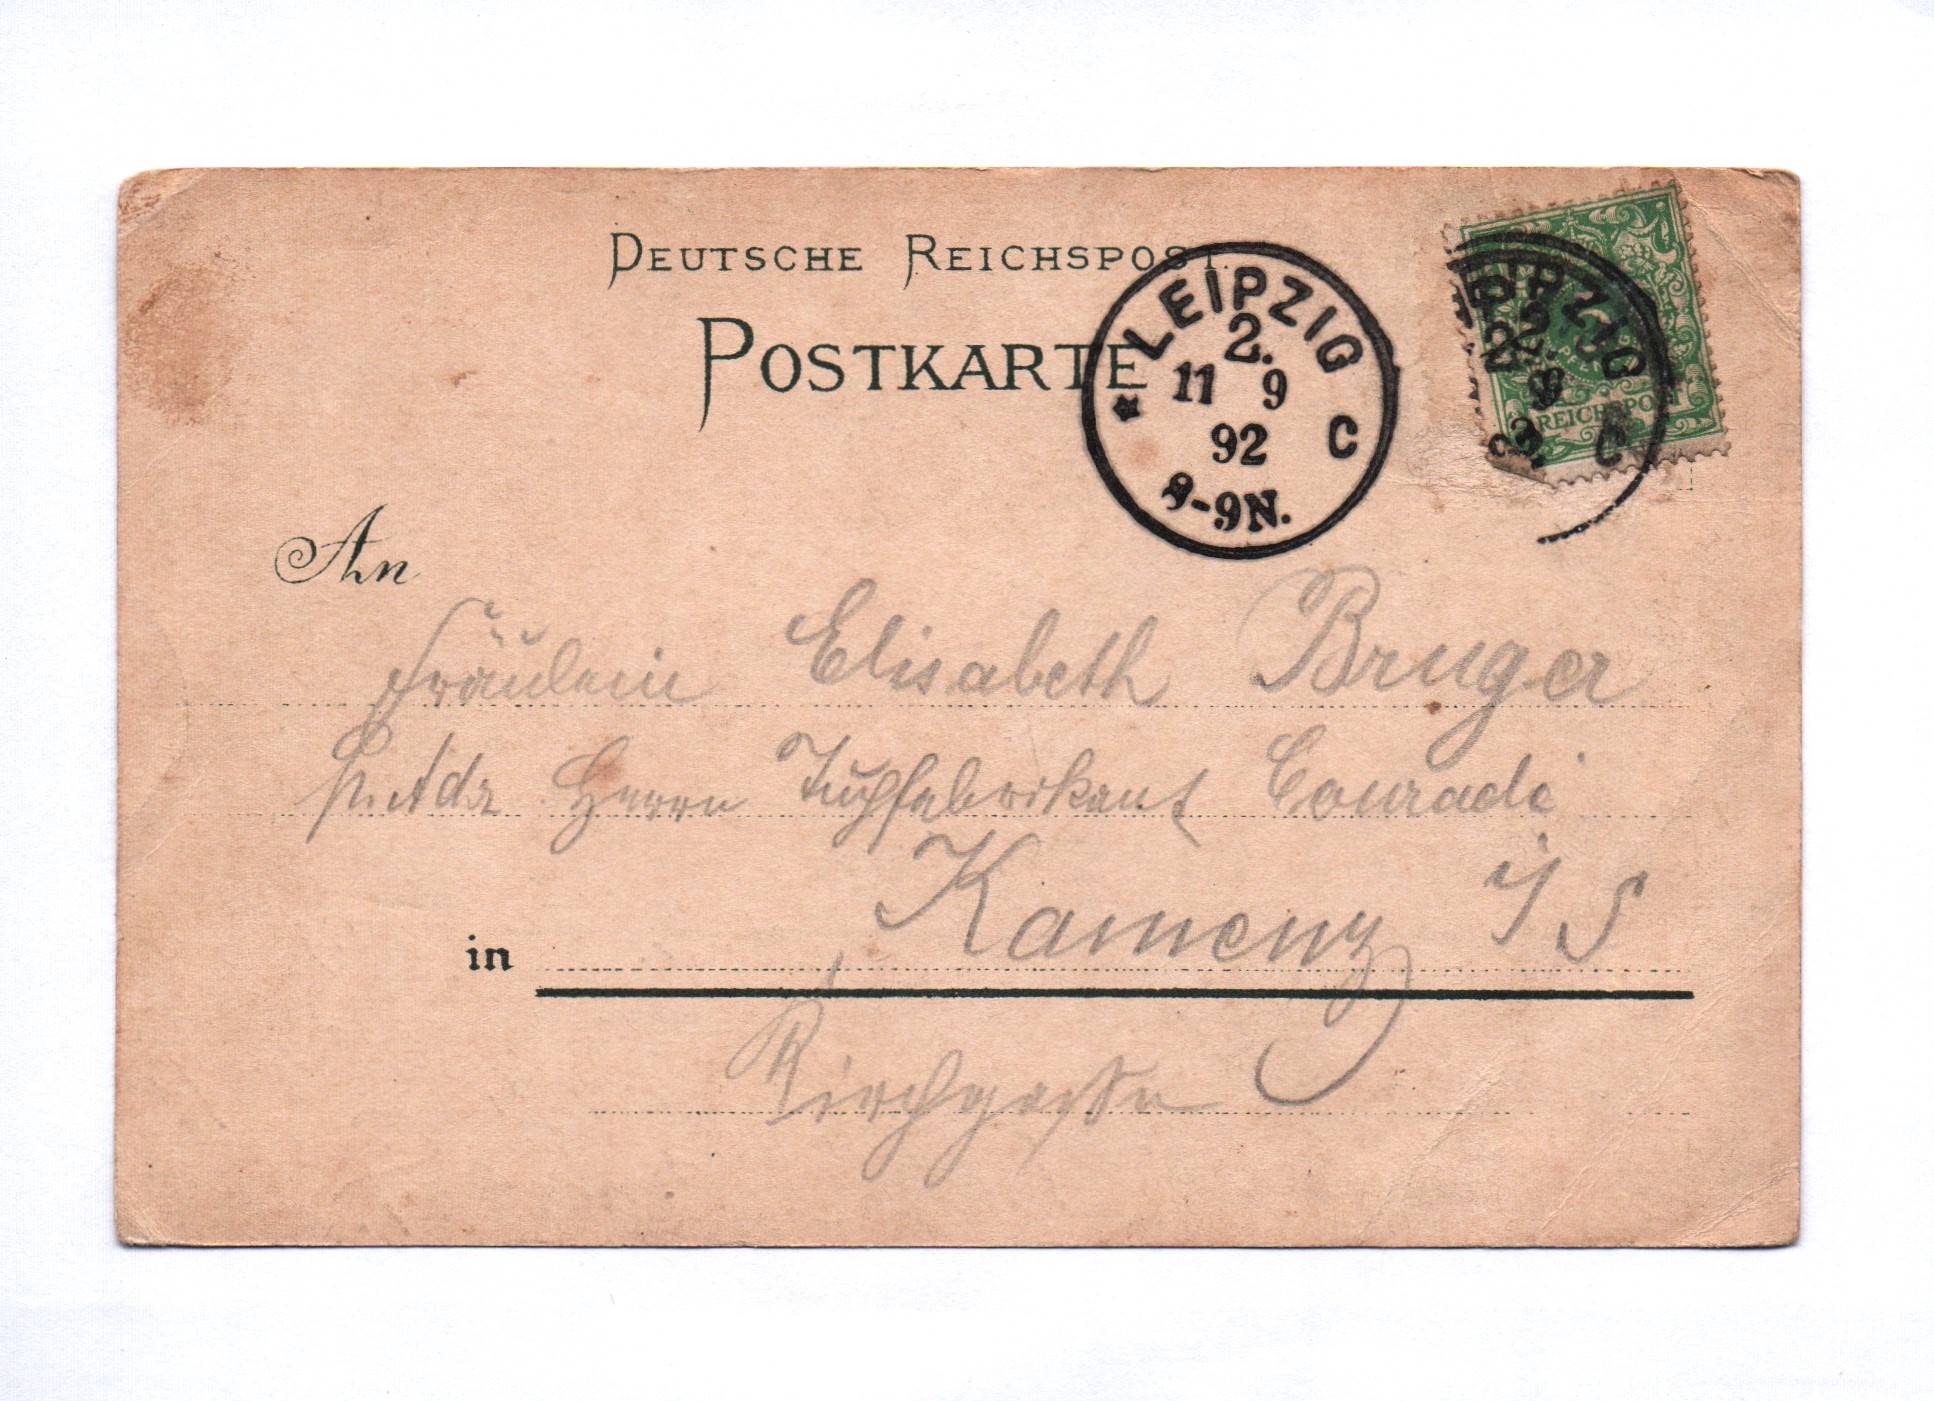 DEUTSCHE REICHSPOST.
POSTKARTE
* LEIPZIG C
2.
11 9
92
8-9N.
LEIPZIG C
2.
9
REICHSPOST
An
Fräulein Elisabeth Bruger
p. Adr. Herrn Tuchfabrikant Conradi
in Kamenz i/S
Kirchgasse